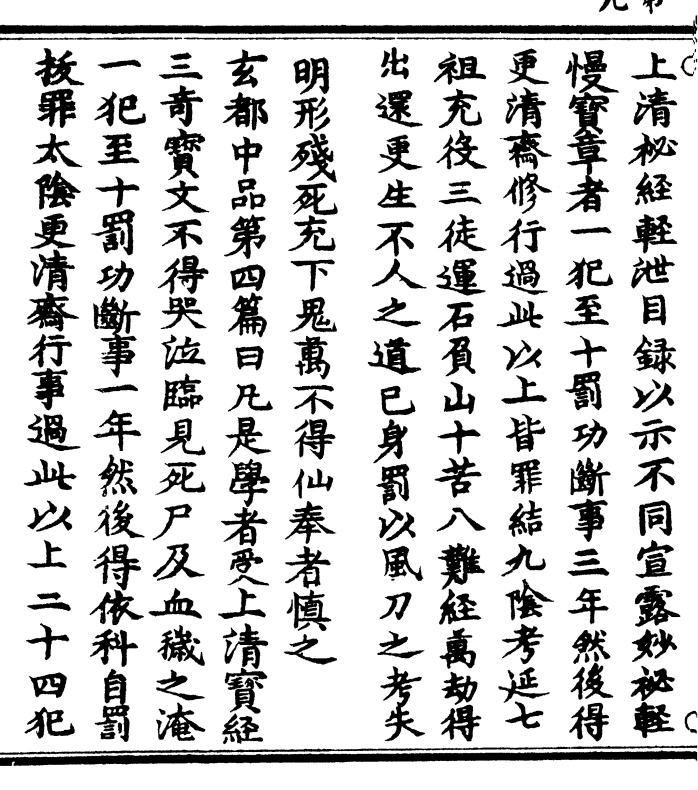 上清祕經輕泄目録以示不同宣露妙祕輕
慢寳章者一犯至十罰功斷事三年然後得
更清齋修行過此以上皆罪結九陰考延七
祖充役三徒運石負山十苦八難經萬劫得
出還更生不人之道已身罰以風刀之考失
明形殘死充下鬼萬不得仙奉者慎之
玄都中品第四篇曰凡是學者受上清寳經
三奇寳文不得哭泣臨見死尸及血穢之淹
一犯至十罰功斷事一年然後得依科自罰
拔罪太陰更清齋行事過此以上二十四犯